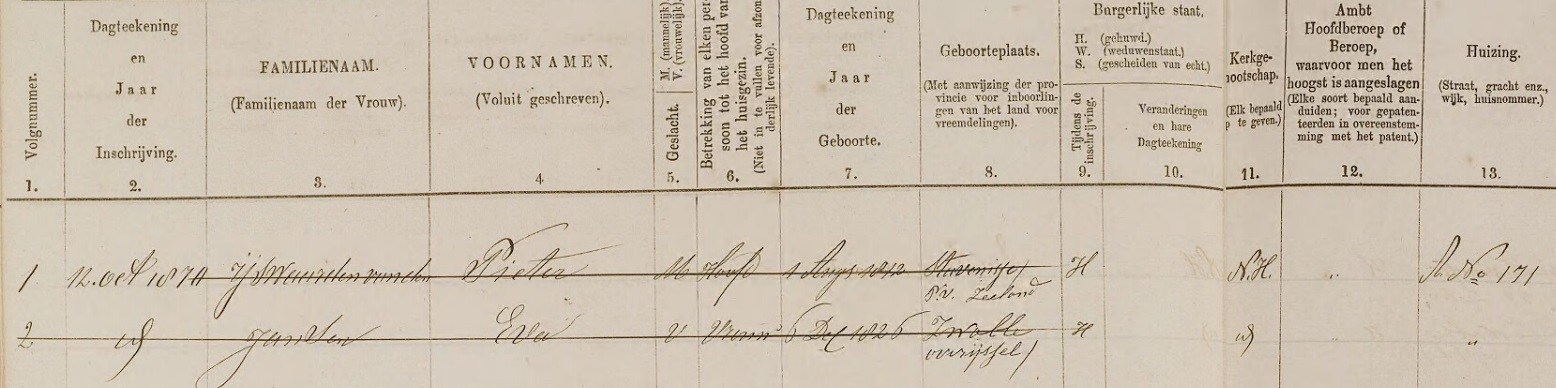 Volgnummer.
1.
Dagteekening
en
Jaar
der
Inschrijving.
2.
FAMILIENAAM.
(Familienaam der Vrouw).
3.
VOORNAMEN.
(Voluit geschreven).
4.
Geslacht. M. (mannelijk).
V. (vrouwelijk).
5.
Betrekking van elken per-
soon tot het hoofd van
het huisgezin.
(Niet in te vullen voor afzon
derlijk levende).
6.
Dagteekening
en
Jaar
der
Geboorte.
7.
Geboorteplaats.
(Met aanwijzing der pro-
vincie voor inboorlin-
gen van het land voor
vreemdelingen).
8.
Burgerlijke staat.
H. (gehuwd.)
W. (weduwenstaat.)
S. (gescheiden van echt.)
Tijdens de
inschrijving.
9.
Veranderingen
en hare
Dagteekening
10.
Kerkge-
nootschap.
(Elk bepaald
p te geven.)
11.
Ambt
Hoofdberoep of
Beroep,
waarvoor men het
hoogst is aangeslagen
(Elke soort bepaald aan-
duiden; voor gepaten-
teerden in overeenstem-
ming met het patent.)
12.
Huizing.
(Straat, gracht enz.,
wijk, huisnommer.)
13.
1 12. Oct 1874 Pieter M Hoofd 1 1812 Stavenisse H N.H. „ A No 171
P.v. Zeeland
2 id Jansen Eva V Vrouw 6 Dec 1826 Zwolle H id „
overijssel)